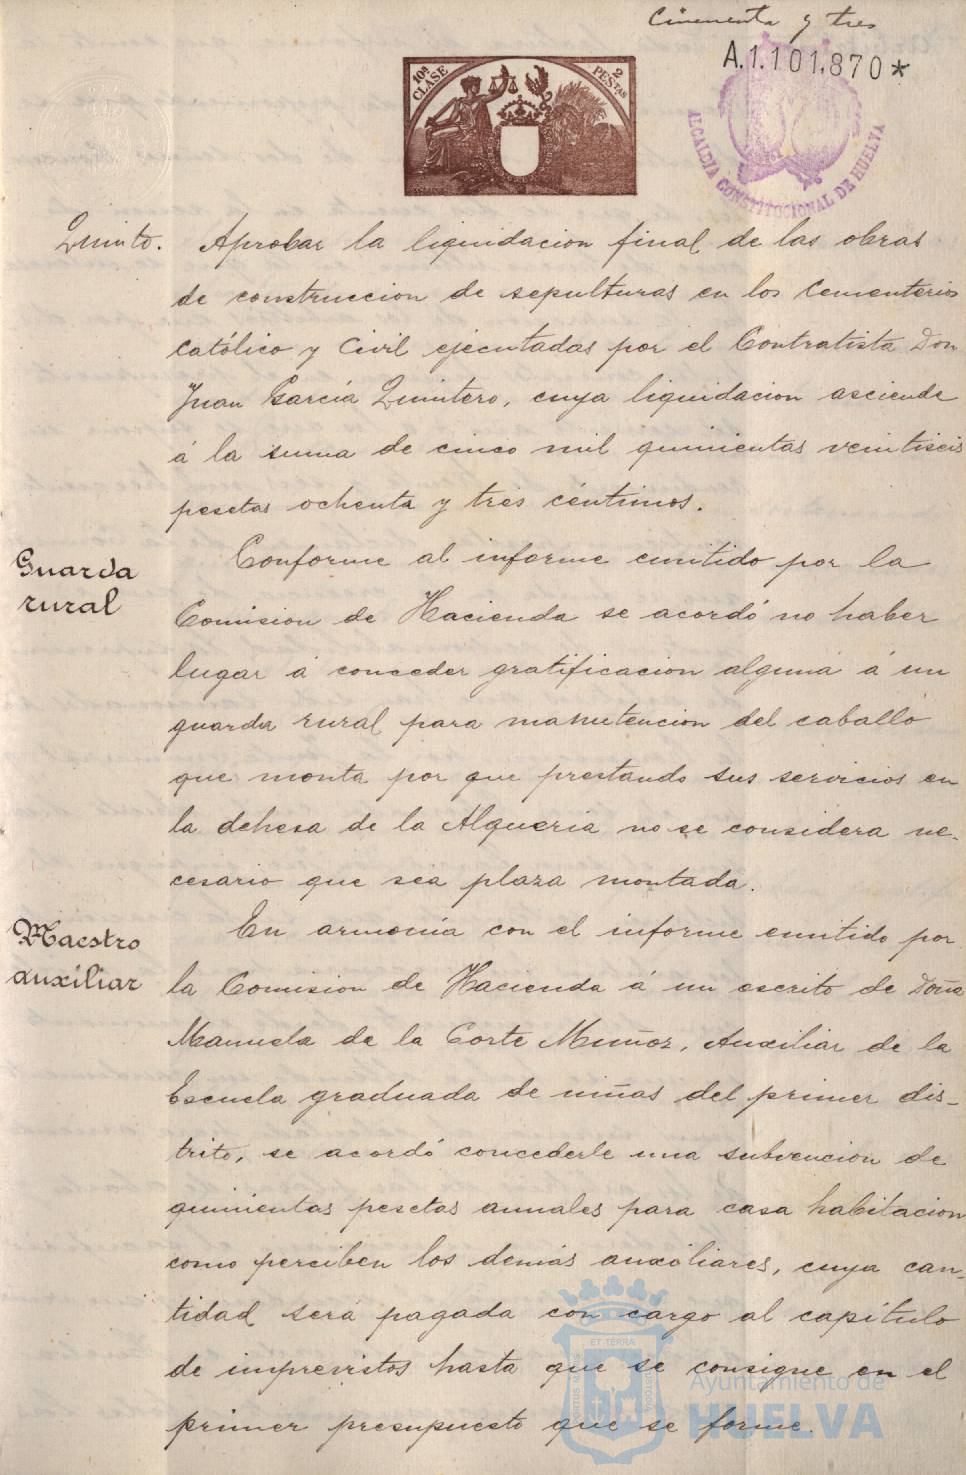 Cincuenta y tres
A.1.101.870*
10ª CLASE
2 PESTAS
ALCALDIA CONSTITUCIONAL DE HUELVA
Quinto. Aprobar la liquidacion final de las obras
de construccion de sepulturas en los Cementerios
Católico y Civil ejecutadas por el Contratista Don
Juan García Quintero, cuya liquidacion asciende
á la suma de cinco mil quinientas veintiseis
pesetas ochenta y tres céntimos.
Guarda
rural
Conforme al informe emitido por la
Comision de Hacienda se acordó no haber
lugar á conceder gratificacion alguna á un
guarda rural para manutencion del caballo
que monta por que prestando sus servicios en
la dehesa de la Alqueria no se considera ne-
cesario que sea plaza montada.
Maestro
auxiliar
En armonía con el informe emitido por
la Comision de Hacienda á un escrito de Doña
Manuela de la Corte Muñoz, Auxiliar de la
Escuela graduada de niñas del primer dis-
trito, se acordó concederle una subvencion de
quinientas pesetas anuales para casa habitacion
como perciben los demás auxiliares, cuya can-
tidad será pagada con cargo al capítulo
de imprevistos hasta que se consigne en el
primer presupuesto que se forme.
ET TERRA
Ayuntamiento de
HUELVA